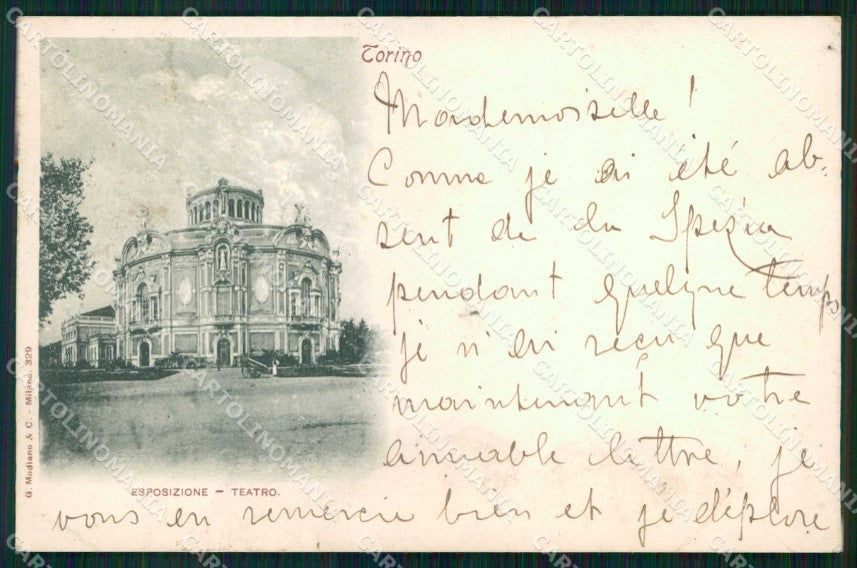 Torino
Mademoiselle!
Comme je ai été ab-
sent de la Spezia
pendant quelque temps
je n'ai reçu que
maintenant votre
aimable lettre, je
vous en remercie bien et je déplore
G. Modiano & C. - Milano. 329
ESPOSIZIONE - TEATRO.
CARTOLINOMANIA